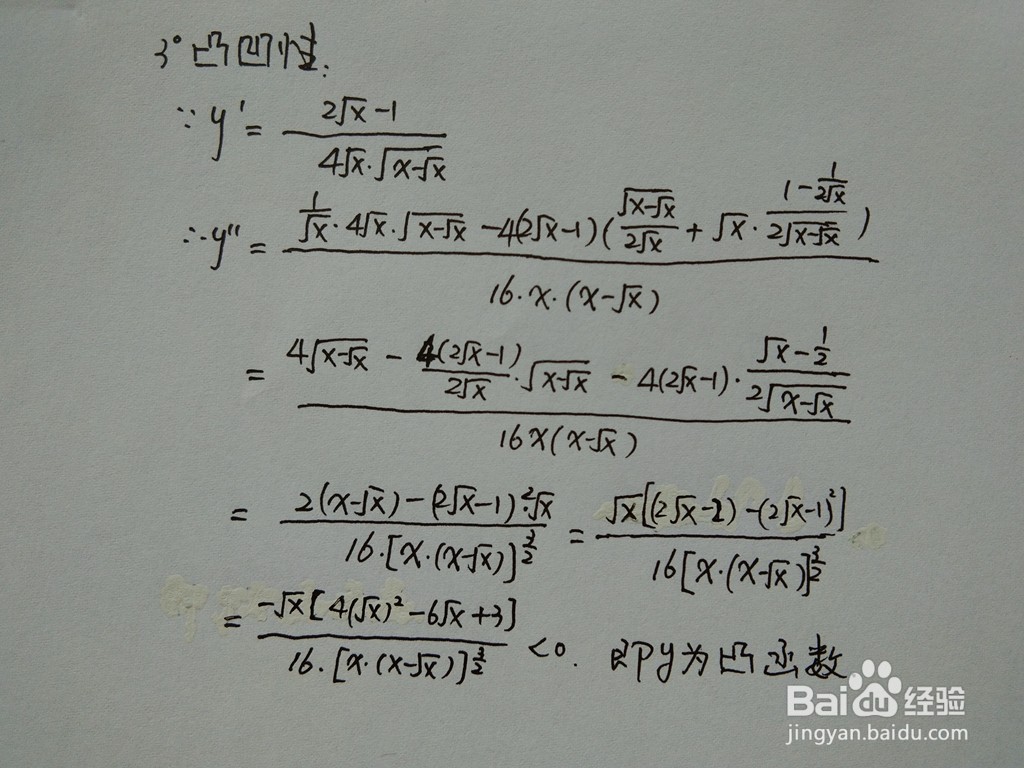 3° 凸凹性.
∵ y' = (2√x - 1) / (4√x·√(x-√x))
∴ y'' = (1/√x · 4√x·√(x-√x) - 4(2√x-1)(√(x-√x)/(2√x) + √x · (1 - 1/(2√x))/(2√(x-√x)))) / (16·x·(x-√x))
= (4√(x-√x) - 4(2√x-1)/(2√x) · √(x-√x) - 4(2√x-1) · (√x - 1/2)/(2√(x-√x))) / (16x(x-√x))
= (2(x-√x) - (2√x-1)²·√x) / (16·[x·(x-√x)]^(3/2)) = √x[(2√x-2) - (2√x-1)²] / (16[x·(x-√x)]^(3/2))
= -√x[4(√x)² - 6√x + 3] / (16·[x·(x-√x)]^(3/2)) < 0. 即y为凸函数
Baidu经验
jingyan.baidu.com